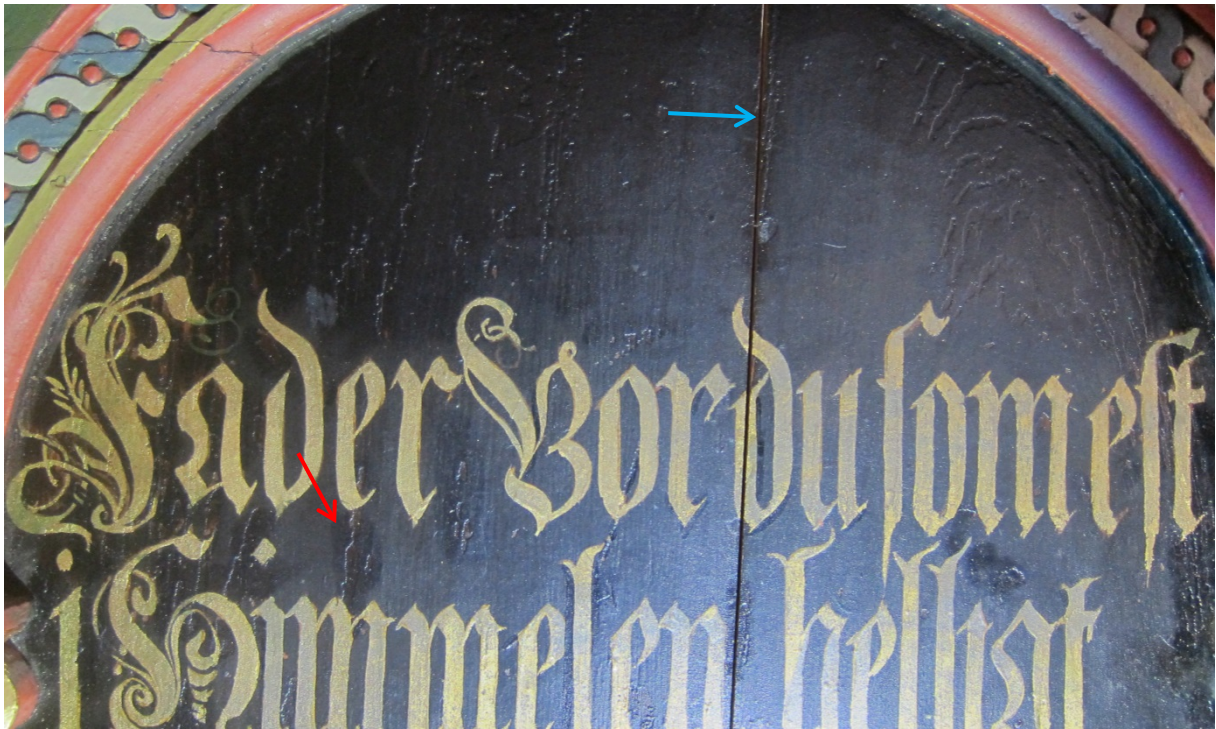 Fader Vor du som est
i Himmelen helligt